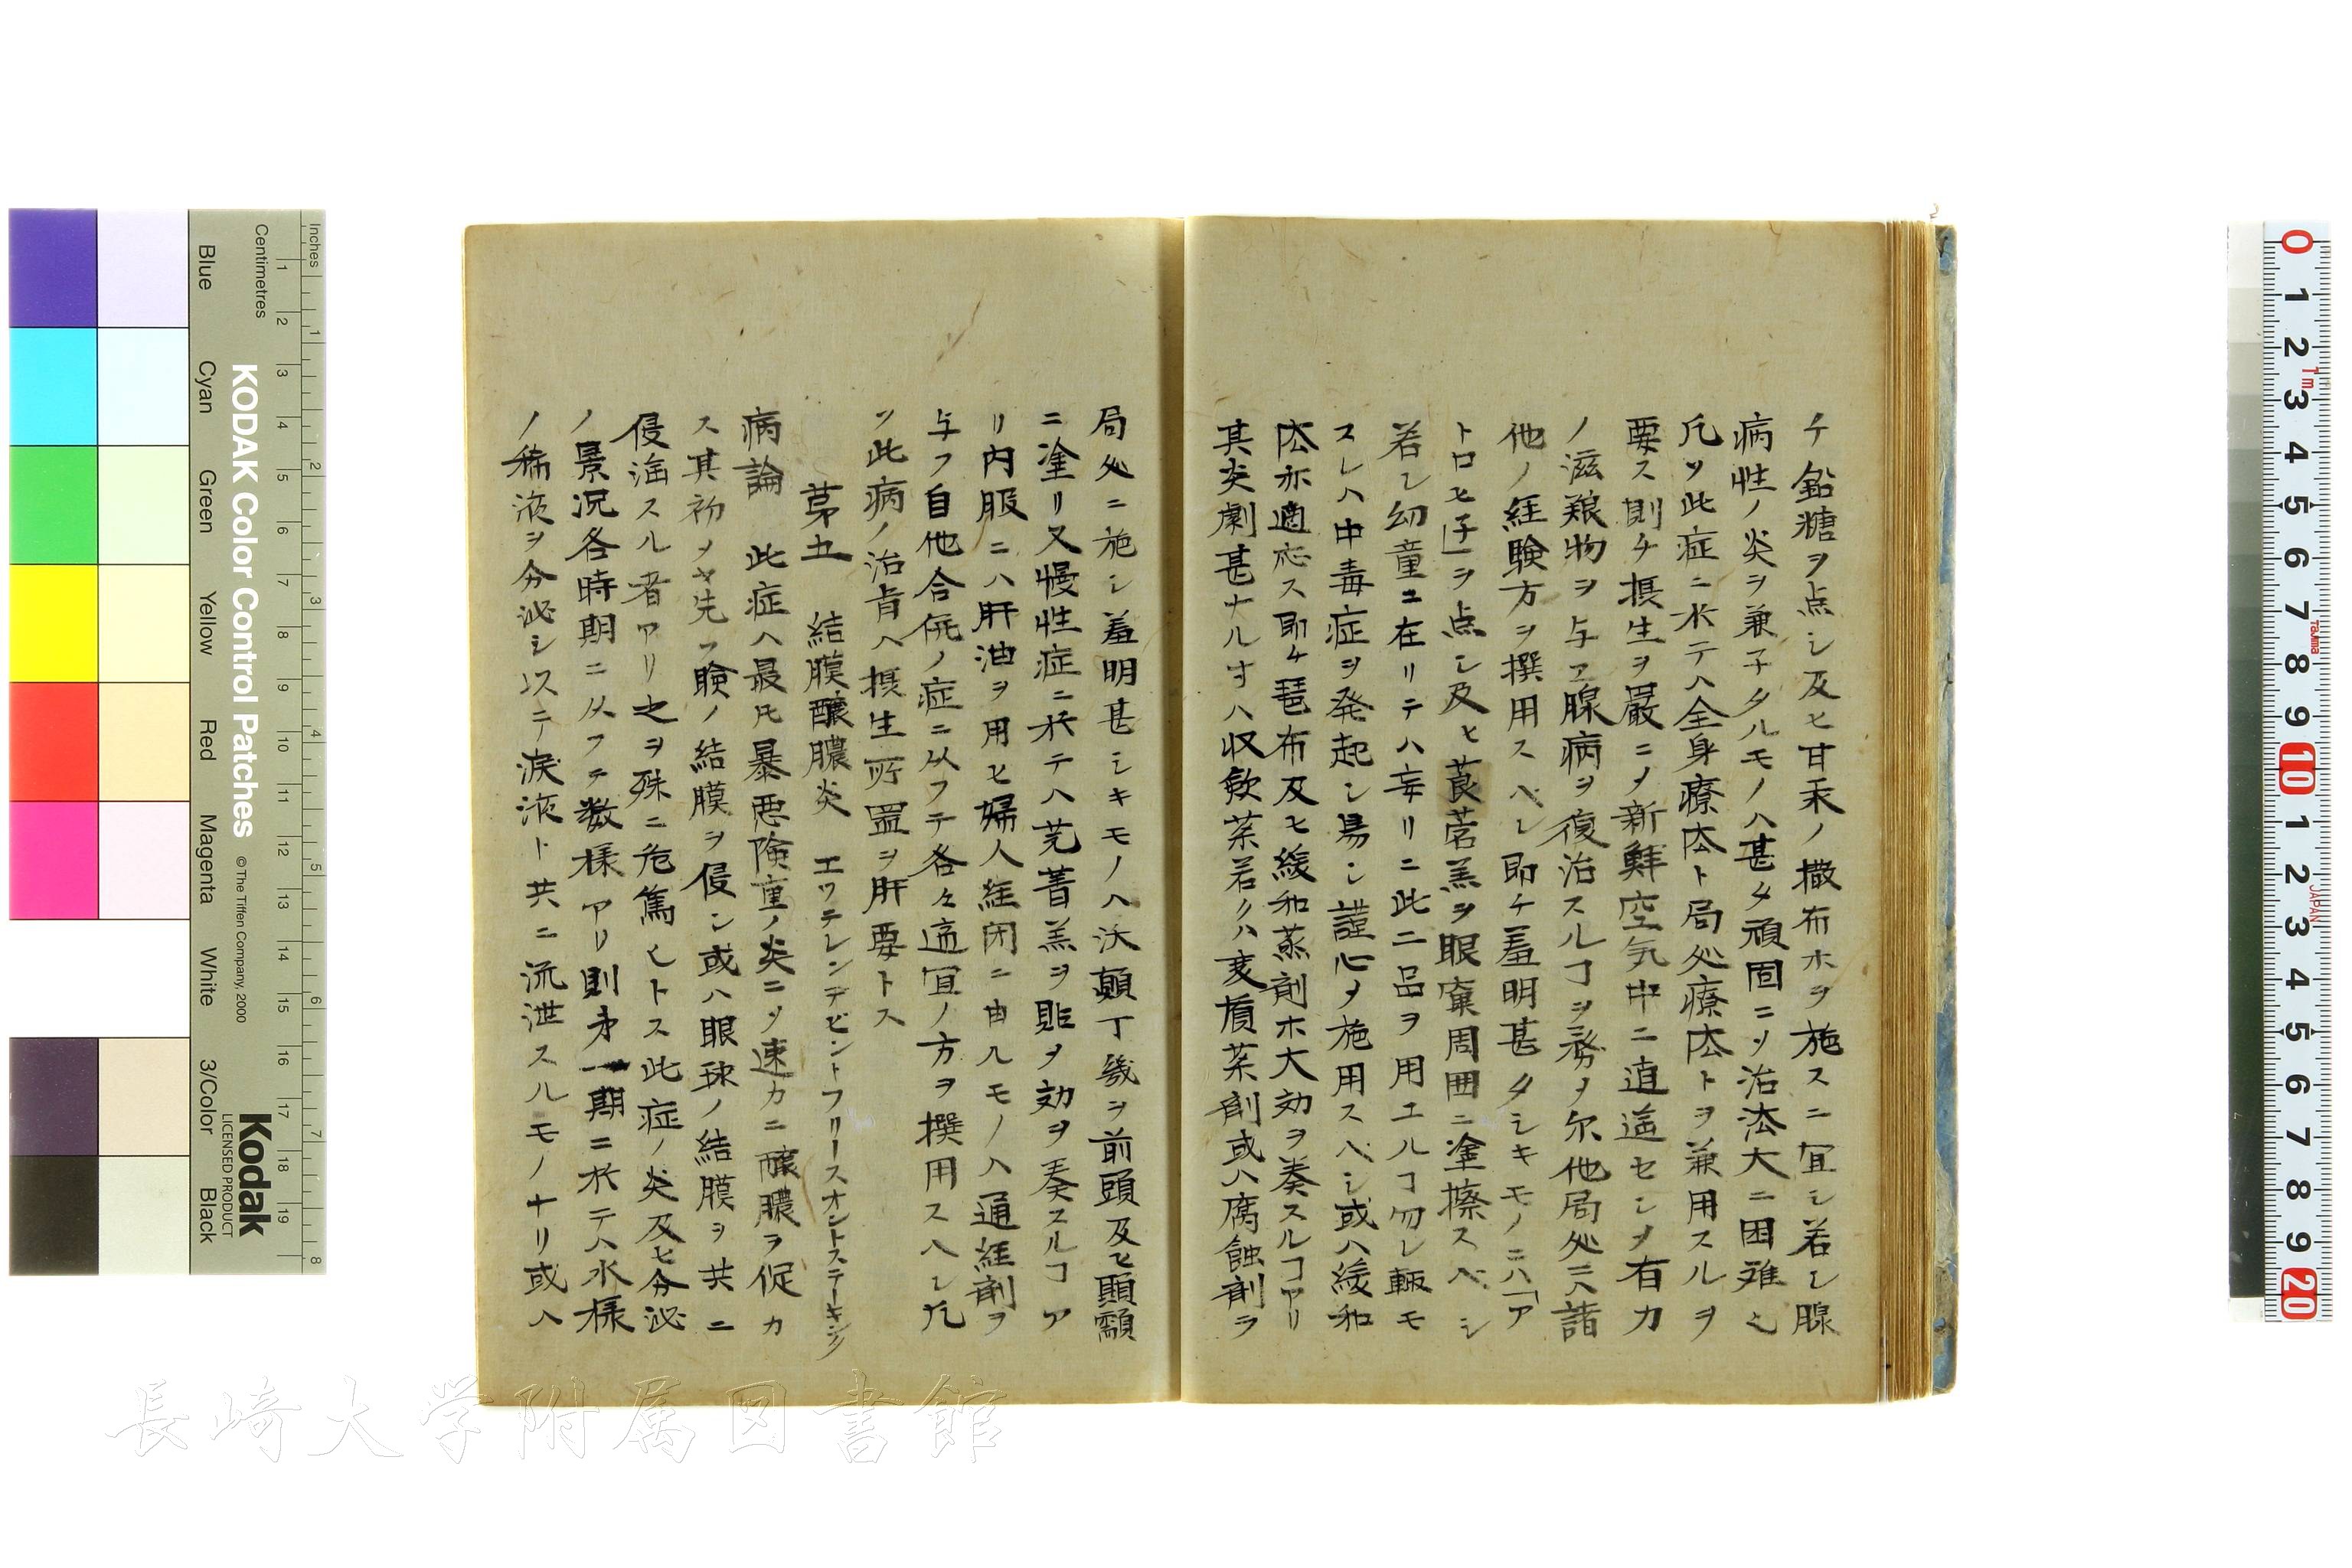 チ鉛糖ヲ点シ及ヒ甘汞ノ撒布ホヲ施スニ冝シ若シ腺
病性ノ炎ヲ兼子タルモノハ甚タ頑固ニノ治法大ニ困难也
凡ソ此症ニ於テハ全身療法ト局処療法トヲ兼用スルヲ
要ス則チ摂生ヲ嚴ニノ新鮮空気中ニ逍遥セシメ有力
ノ滋粮物ヲ与ヱ腺病ヲ復治スルヿヲ務メ尓他局処ニハ諸
他ノ経験方ヲ撰用スヘシ即チ羞明甚タシキモノニハ「ア
トロヒ子」ヲ点シ及ヒ莨菪羔ヲ眼窠周囲ニ塗擦スベシ
若シ幼童ニ在リテハ妄リニ此二品ヲ用エルヿ勿レ輙モ
スレハ中毒症ヲ発起シ易シ謹心メ施用スベシ或ハ緩和
法亦適応ス即チ琶布及ヒ緩和蒸剤ホ大効ヲ奏スルヿアリ
其炎劇甚ナルすハ収歛茶若クハ変質茶剤或ハ腐蝕剤ヲ
局処ニ施シ羞明甚シキモノヘハ沃顛丁幾ヲ前頭及ヒ顕顬
ニ塗リ又慢性症ニ於テハ芫菁羔ヲ貼メ効ヲ奏スルヿア
リ内服ニハ肝油ヲ用ヒ婦人経閉ニ由ルモノハ通経剤ヲ
与フ自他合併ノ症ニ从フテ各々適冝ノ方ヲ撰用スヘシ凡
ソ此病ノ治肯ハ摂生所置ヲ肝要トス
苐五 結膜釀膿炎 エワテレンデビントフリースオントステーキング
病論 此症ハ最凡暴悪険重ノ炎ニノ速カニ釀膿ヲ促カ
ス其初メヤ先ツ瞼ノ結膜ヲ侵シ或ハ眼球ノ結膜ヲ共ニ
侵淫スル者アリ之ヲ殊ニ危篤ヒトス此症ノ炎及ヒ分泌
ノ景況各時期ニ从フテ数様アリ則チ一期ニ於テハ水様
ノ稀液ヲ分泌シ以テ涙液ト共ニ流泄スルモノナリ或ハ
KODAK Color Control Patches
© The Tiffen Company, 2000
Kodak
LICENSED PRODUCT
Inches
Centimetres
Blue Cyan Green Yellow Red Magenta White 3/Color Black
長崎大学附属図書館